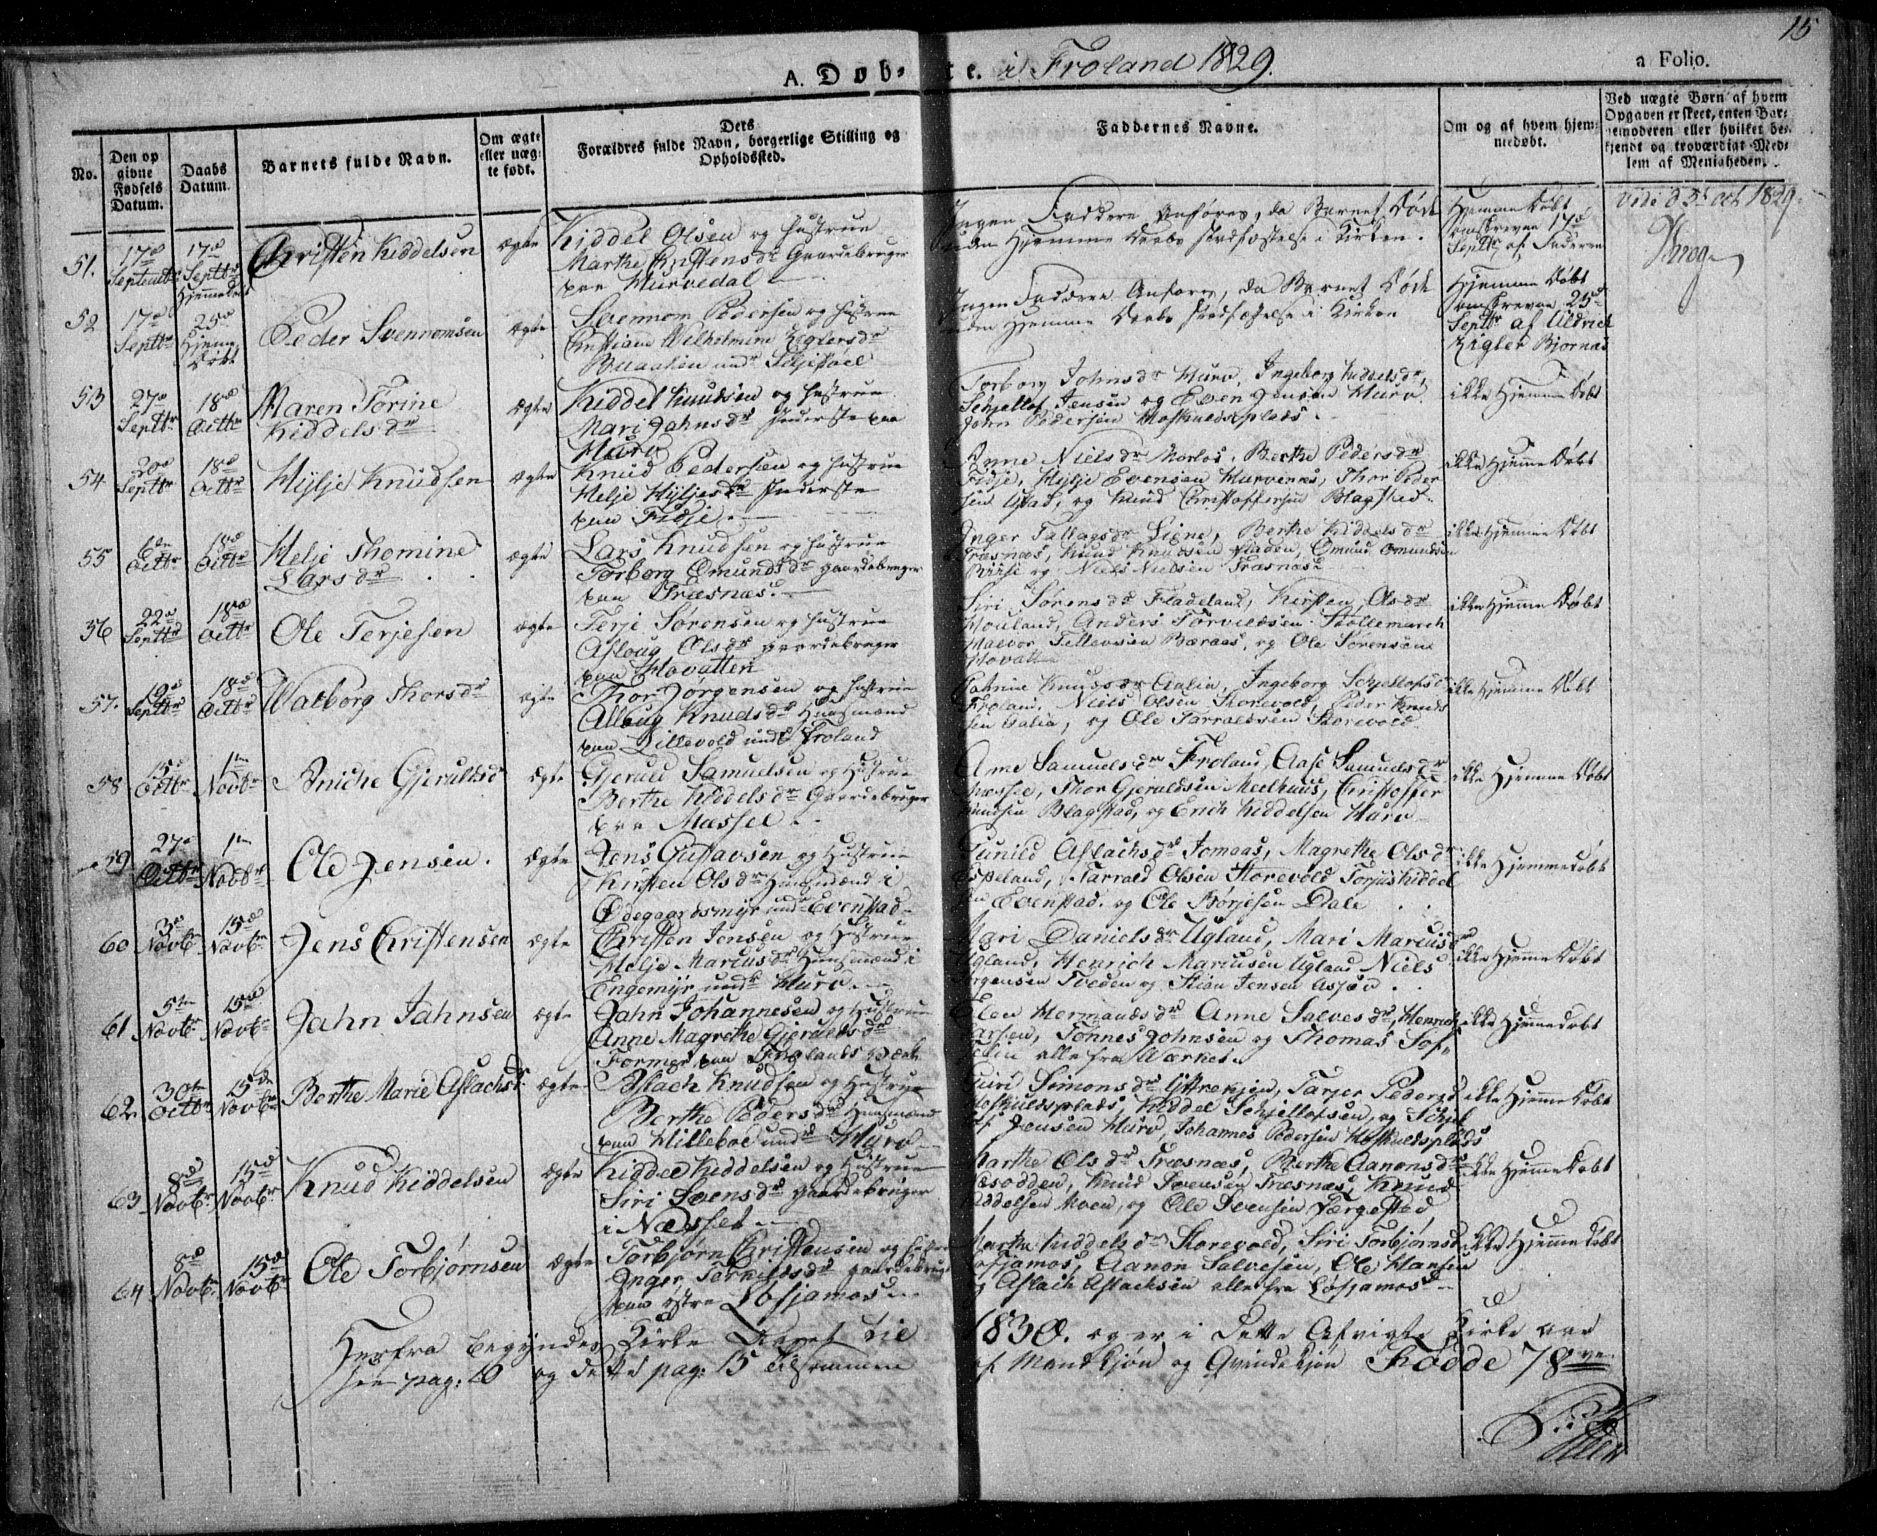 15
A. Døb- te. i Froland 1829.
a Folio.
No.
Den op
givne
Fødsels
Datum.
Daabs
Datum.
Barnets fulde Navn.
Om ægte
eller uæg-
te født.
Ders
Forældres fulde Navn, borgerlige Stilling og
Opholdssted.
Faddernes Navne.
Om og af hvem hjem-
medøbt.
Ved uægte Børn af hvem
Opgaven er skeet, enten Bar-
nemoderen eller hvilket be-
kjendt og troværdigt Med-
lem af Menigheden.
51.
17de
Septembr
17de
Septbr
Hjemmedøbt
Christen Kiddelsen
ægte
Kiddel Olsen og Hustrue
Marthe Gaardebruger
paa Hurvedal
Ingen Faddere Anføres, da Barnet Døde
inden Hjemme Daabs Stadfæstelse i Kirken.
Hjemme Døbt
17d
Septbr af Faderen
d 5t Oct 1829
52
17de
Septbr
25de
Hjemme
Døbt
Peder Svennomsen
ægte
Svennom Pedersen og Hustrue
Christiane Wilhelmine Ziglersdr
und
Ingen Faddere Anføres, da Barnet Døde
inden Hjemme Daabs Stadfæstelse i Kirken
Hjemme Døbt
25d
Septbr af
Zigler Bjornaas
53
27de
Septbr
18de
Octbr
Maren Torine
Kiddelsdr
Ægte
Kiddel Knudsen og Hustrue
Mari Jahnsdr Inderste paa
Hurv
Torborg Johnsdr Hurv, Ingeborg Kiddelsdr,
Schjellof Jensen og Even Jensen Hurv
John Pedersen Hofkuldsplads
ikke Hjemme Døbt
54
20de
Septbr
18de
Octbr
Hylje Knudsen
ægte
Knud Pedersen og Hustrue
Helje Hyljesdr Inderste
paa Fidje
Anne Nielsdr Morløs, Berthe Pedersdr
Fidje, Hylje Evensen Hurvenes, Thor Peder
sen Ugstad, og Knud Christoffersen Blagstad
ikke Hjemme Døbt
55
6te
Octbr
18de
Octbr
Helje Thomine
Larsdr
ægte
Lars Knudsen og Hustrue
Torborg Omundsdr gaardebruger
paa Træsnæs.
Inger Tallagsdr Signe, Berthe Kiddelsdr
Træsnæs, Knud Knudsen Fladen, Omund Omundsen
og Niels Nielsen Træsnæs
ikke Hjemme Døbt
56
22de
Septbr
18de
Octbr
Ole Terjesen
ægte
Terje Sørensen og Hustrue
Asloug Olsdr gaardebruger
paa Hovatten
Siri Sørensdr Fladeland, Kirsten Olsdr
Houland, Anders Torvildsen Stollemarch
Halvor Tellevsen Børaas, og Ole Sørensen
Hovatt
ikke Hjemme Døbt
57.
19de
Septbr
18de
Octbr
Walborg Thorsdr
ægte
Thor Jørgensen og Hustrue
Asloug Knudsdr Huusmænd
paa Lillevold under Froland
Knudsdr Aalia, Ingeborg Schjellofsd
Froland, Niels Olsen Storevold, Peder Knud
sen Aalia, og Ole Tarraldsen Storevold
ikke Hjemme Døbt
58
15de
Octbr
1ste
Novbr
Aniche Gjeruldsd
Ægte
Gjeruld Samuelsen og Hustrue
Berthe Kiddelsdr Gaardebruger
paa Messel
Ane Samuelsdr Froland, Aase Samuelsdr
Messel, Thor Gjeruldsen Meelhuus, Christoffer
Knudsen Blagstad, og Erich Kiddelsen Hurv
ikke Hjemme Døbt
59
27de
Octbr
1ste
Novbr
Ole Jensen.
Ægte
Jens Gustavsen og Hustrue
Kirsten Olsdr Huusmænd i
Ødegaardsmyr und Evenstad
Gunild Aslachsdr Jomaas, Magrethe Olsdr
Espeland, Tarrald Olsen Storevold Torjus Kiddel
sen Evenstad, og Ole Børjesen Dale
ikke Hjemmedøbt
60
3de
Novbr
15de
Novbr
Jens Christensen
ægte
Christen Jensen og Hustrue
Helje Marcusdr Huusmænd i
Engemyr und Hurv
Mari Danielsdr Ugland, Mari Marcusdr
Ugland, Henrich Marcusen Ugland Niels
Jørgensen Tveden og Stian Jensen Asjøn
ikke Hjemme Døbt
61
5te
Novbr
15de
Novbr
Jahn Jahnsen
ægte
Jahn Johannesen og Hustrue
Anne Magrethe Gjeruldsdr
Former paa Frolands Værk
Elen Hermandsdr Anne Salvesdr, Henrich
Larsen, Tønnes Johnsen og Thomas Tof-
alle fra Værket
ikke Hjemmedøbt
62.
30te
Octbr
15de
Novbr
Berthe Marie Aslachsdr
ægte
Aslach Knudsen og Hustrue
Berthe Pedersdr Huusmænd
paa Hilleboe und Hurv
Guri Simonsdr Yttrekjøn, Tarjer Pedersd
Hofkuldsplads Kiddel Schjellofsen, og Schjel
lof Jensen Hurv, Johannes Pedersen Hofkuldsplads
ikke Hjemme Døbt
63
8de
Novbr
15de
Novbr
Knud Kiddelsen
ægte
Kiddel Kiddelsen og Hustrue
Siri Svensdr gaardebruger
i Næsset
Marthe Olsdr Træsnæs, Berthe Aanonsdr
Næsodden, Knud Svensen Træsnæs, Knud
Kiddelsen Moen, og Ole Svensen Færgested
ikke Hjemme Døbt
64
8de
Novbr
15de
Novbr
Ole Torbjørnsen
ægte
Torbjørn Christensen og Hustrue
Inger Terkildsdr gaardebruger
paa østre Løfsjamos
Marthe Kiddelsdr Storevold, Siri Torbjørnsd
Løfsjamos, Aanon Salvesen, Ole Hansen
og Aslach Aslachsen alle fra Løfsjamos
ikke Hjemme døbt
Herfra begyndes Kirke Aaret til 1830. og er i dette Afvigte Kirke aar
see pag: 10 og dette pag: 15 tilsammen af Mandkjøn og Qvindekjøn Fødde 78ve